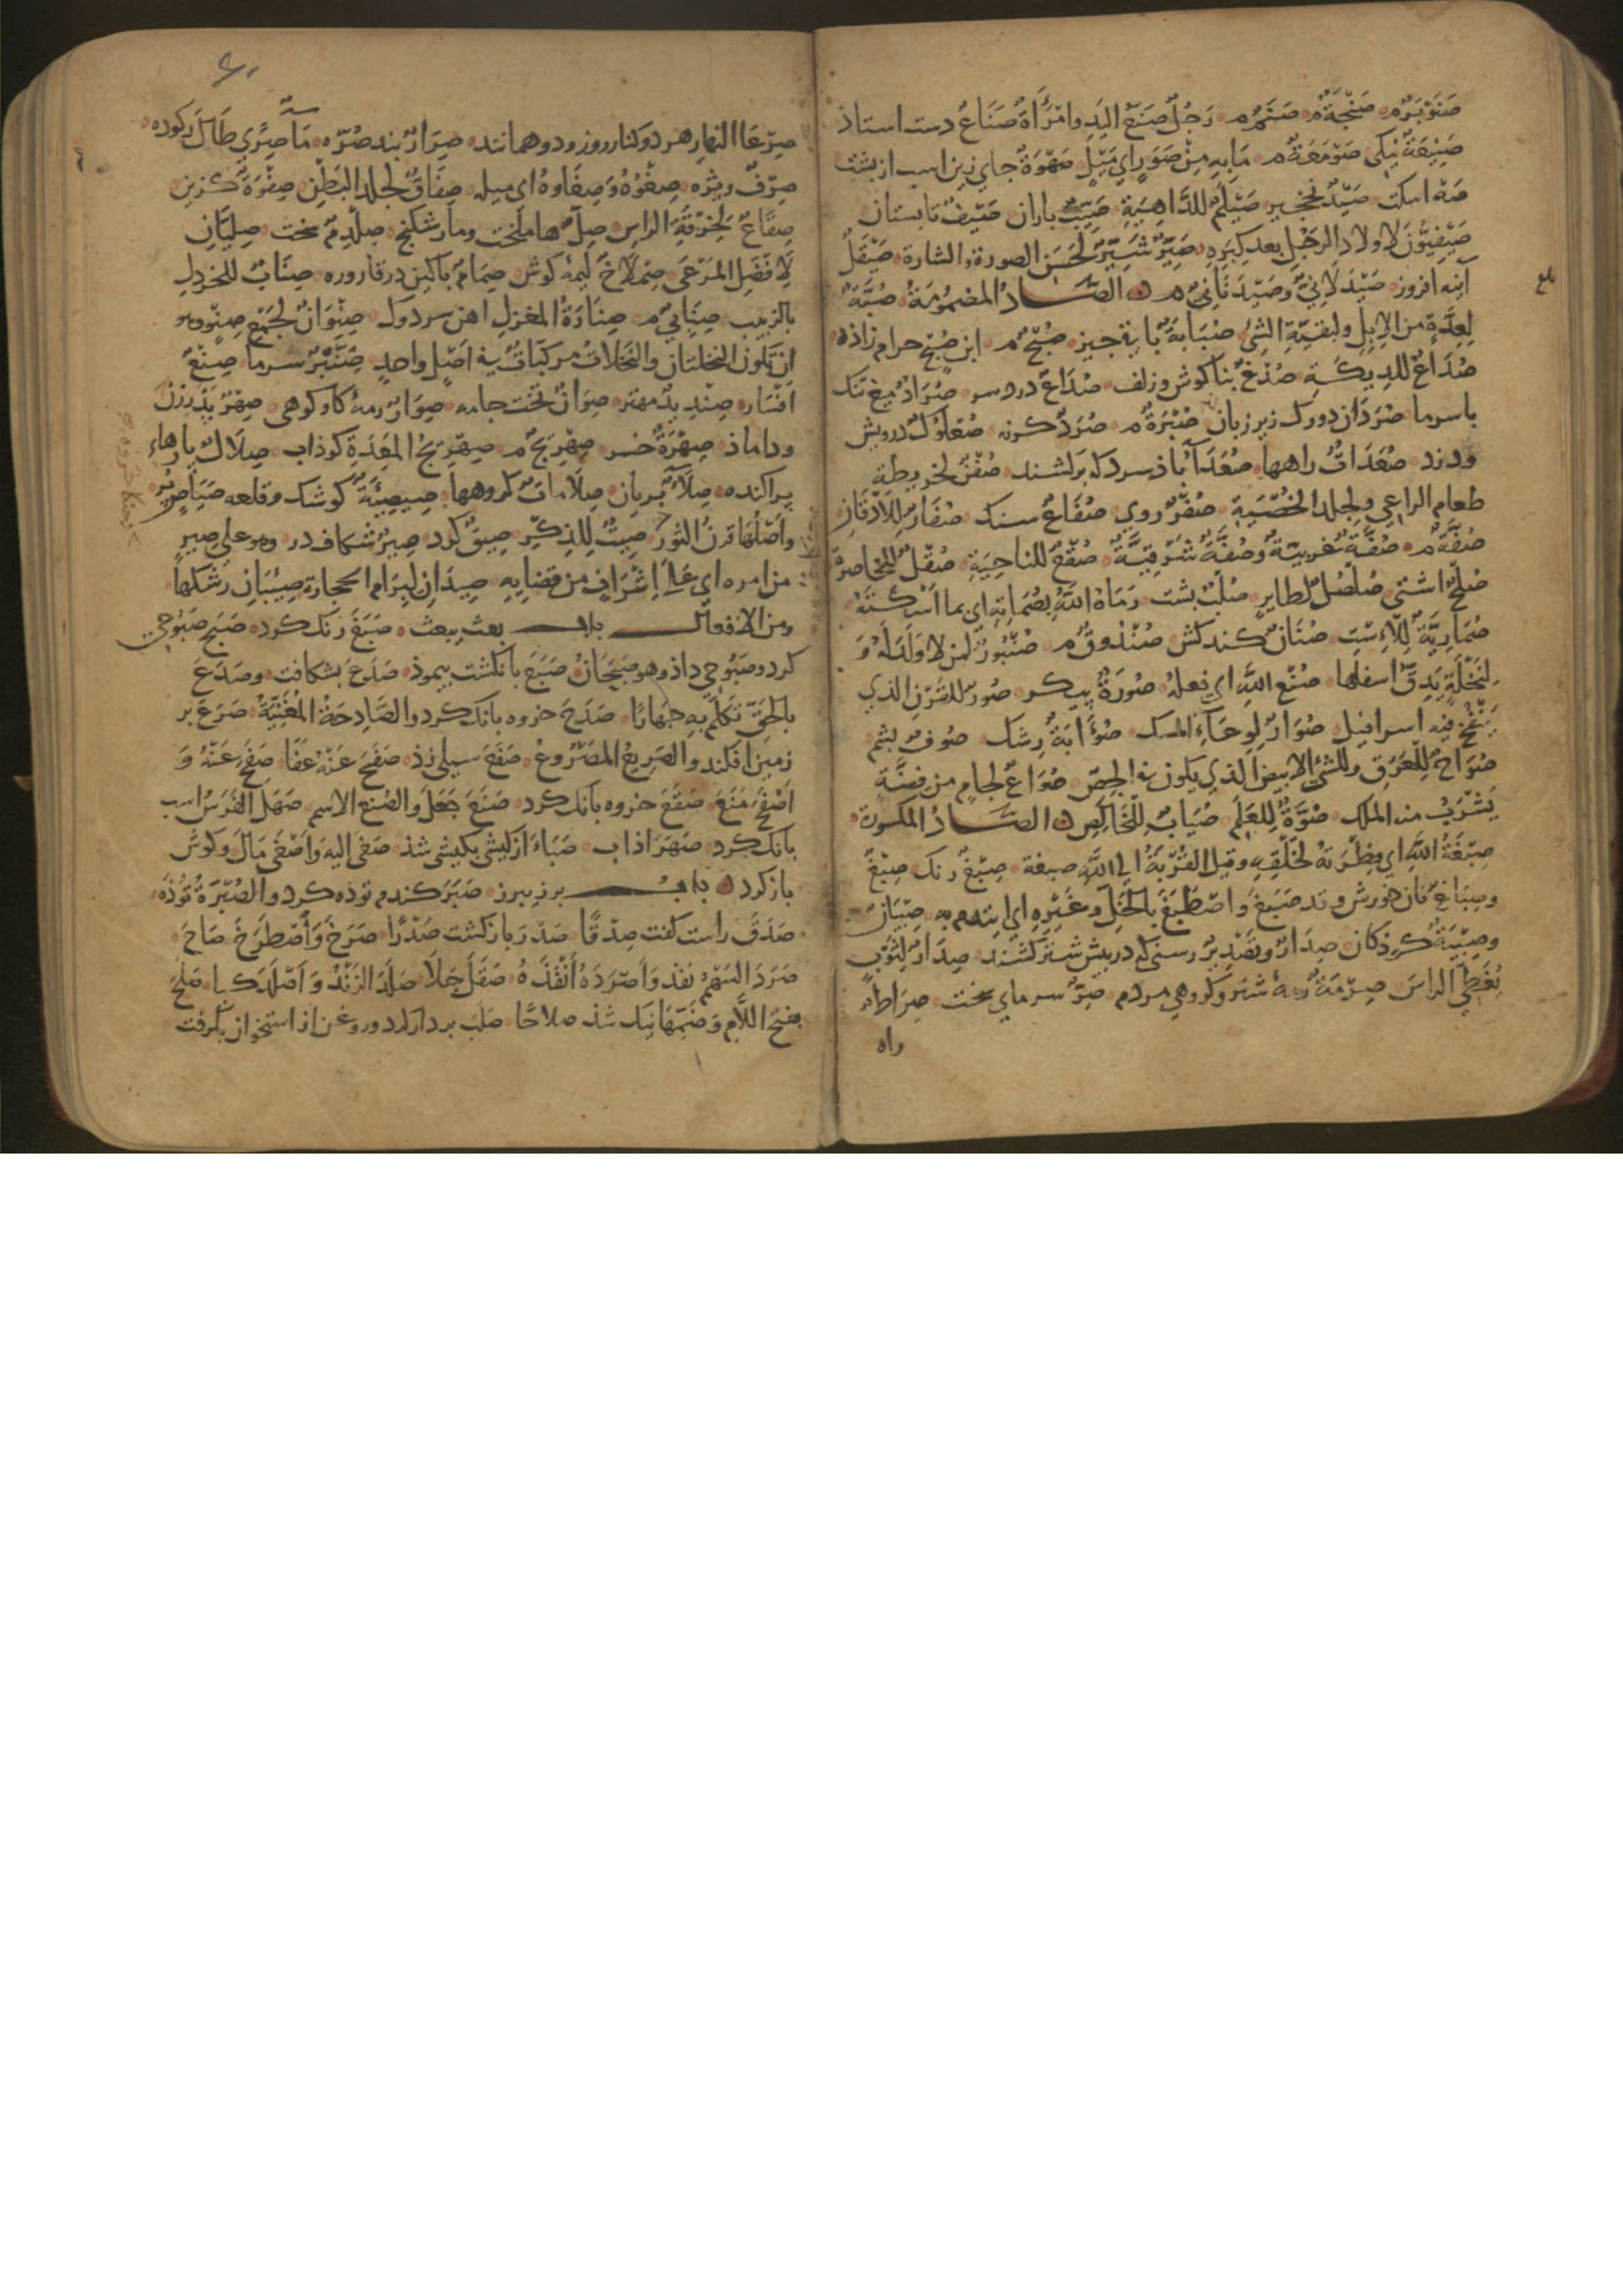 صَنَوْبَرٌ م صَنْجَةٌ م صَنَمٌ م رَجُلٌ صَنَعُ اليَدِ وامْرَأَةٌ صَنَاعٌ دست استاذ
صَنِيعَةٌ نیکی صَوْمَعَةٌ م مَا بِهِ مِنْ صَوَرٍ اي مَيْلٍ صَهْوَةٌ جاي زين اسب از بشت
صَهْ اسكت صَيْدٌ نخجیر صَيْلَمٌ للدَّاهِيَةِ صَيِّبٌ باران صَيْفٌ تابستان
صَيْفِيُّونَ لاولادِ الرجُلِ بعد كِبَرِهِ صَيِّرٌ شَيِّرٌ لحَسَنِ الصورة والشارة صَيْقَلٌ
آينه افروز صَيْدَلَانِيٌّ وصَيْدَنَانِيٌّ م الصَّادُ المضمُومَةُ صُبَّةٌ
لِعِدَّةٍ من الابِلِ ولبقيّةِ الشئِ صُبَابَةٌ باقي جيز صُبْحٌ م ابن صُبْحٍ حرام زاذه
صُدَاعٌ للدِيكَةِ صُدْغٌ بناكوش وزلف صُدَاعٌ درد سر صُرَّادٌ ميغ تنك
باسرما صُرَدَانِ دو رك زير زبان صُبْرَةٌ م صُرَدٌ کرنه صُعْلُوكٌ درویش
ودزد صُعَدَاتٌ راهها صُعَدَآءُ باذ سرد که برکشند صُفْنٌ لخريطةِ
طعامِ الراعي ولجلد الخُصْيَةِ صُفْرٌ روي صُفَّاحٌ سنك صُفَارٌ
صُفَّةٌ م صُفَّةٌ غربيّةٌ وصُفَّةٌ شَرْقِيَّةٌ صُقْعٌ للناحِيَةِ صُقْلٌ للخاصرة
صُلْحٌ اشتى صُلْصُلٌ لطايرٍ صُلْبٌ بشت رَمَاهُ اللهُ بِصُمَاتِهِ اي بما اسْكتَهُ
صُمَارِيَّةٌ لِلْإسْتِ صُنَانٌ کند کش صُنْدُوقٌ م صُنْبُورٌ لمن لا وَلَدَ لَهُ وَ
لِنَخْلَةٍ يَدِقُّ اسفلها صُنْعُ اللهِ اي فِعلهُ صُورَةٌ بیکر صُورٌ للقَرْنِ الذي
يَنْفُخُ فيه اسرافيل صُوَارٌ لِوِعَآءِ المسك صُؤَابَةٌ رشك صُوفٌ بشم
صُوَاحٌ لِلْعَرَقِ وللشئ الابيض الذي يكون في الجِصّ صُوَاعٌ لجامٍ من فِضَّةٍ
يَشْرَبُ منه الملك صُوَّةٌ لِلعَلَمِ صُيَابٌ للخَالِصِ الصَّادُ المكسورة
صِبْغَةُ اللهِ اي فِطْرَتهُ لخَلْقِهِ وقيل القُرْبَةُ الى اللهِ صبغة صِبْغٌ رنك صِبْغٌ
وصِبَاغٌ نان خورش وقد صَبَغَ واصْطَبَغَ بالخَلِّ وغَيْرِهِ اي ايتدم به صِبْيَانٌ
وصِبْيَةٌ کوذکان صِدَارٌ وتَصْدِيرٌ رسنى که در پیش شتر کشند صِدَارٌ لِثَوْبٍ
يُغَطِّي الراسَ صِرْمَةٌ رمهٔ شتر وکروهي مردم صِرٌّ سرماي سخت صِرَاطٌ
راه
صِرْعَا النهارِ هر دو کنار روز ودو همانند صِرَارٌ بند صُرّه مَآءٌ صِرًى طَالَ رکوده
صِرْفٌ ویژه صِغْوُهُ وَصِغَاوهُ اى ميله صِفَاقٌ لجلد البَطْنِ صِفْوَةٌ کزین
صِقَاعٌ لخِرْقَةِ الراسِ صِلٌّ مار شکنج صِلْدِمٌ سخت صِلِّيَانٌ
لِافْضَلِ المَرْعَى صِمْلَاخٌ ليمهٔ کوش صِمَامٌ در قاروره صِنَابٌ للخردلِ
بالزبيب صِنَابِيٌّ م صِنَارَةُ المِغزلِ اهن سر دوک صِنْوَانٌ لجَمْعِ صِنْوٍ وهو
ان تكون النخلتان والنخلات مركبات في اصْلٍ واحدٍ صِنَّبْرٌ سرما صِنْعٌ
صِنْدِيدٌ مهتر صِوَانٌ تخت جامه صِوَارٌ رمهٔ کاو کوهى صِهْرٌ پدر زن
وداماذ صِهْرَةٌ خسر صِهْرِيجٌ م المَعِدَةِ کوذاب صِلَالٌ بارهاء
براکنده صِلَآءٌ بریان صِلَامَاتٌ کروهها صِيصِيَةٌ کوشک وقلعه صَيَاصٍ
واَصْلُها قرنُ الثور صِيتٌ لِلذِكْرِ صِيقٌ کرد صِيرٌ شکاف در وهو على صِيرٍ
من امره اي عَلَى اِشْرَافٍ من قضايِهِ صِيدَانٌ لِبِرَامِ الحجارة صِيبَانٌ رشکها
ومن الافعال باب بعث يبعث صَبَغَ رنک کرد صَبَحَ صَبُوحى
کرد وصَبُوحى داذ وهو صَبْحَانُ صَبَعَ بانکشت بیموذ صَدَعَ بشکافت وصَدَعَ
بالحَقِّ تَكَلَّمَ بِهِ جِهَارًا صَدَحَ خروه بانک کرد والصَّادِحَةُ المُغَنِّيَةُ صَرَعَ بر
زمین افکند والصَرِيعُ المَصْرُوعُ صَفَعَ سیلی زذ صَفَحَ عَنْهُ عَفَا صَفَحَ عَنْهُ وَ
اَصْفَحَ مَنَعَ صَقَعَ خروه بانک کرد صَنَعَ جَعَلَ والصُنع الاسم صَهَلَ الفَرَسُ اسب
بانک کرد صَهَرَ اذاب صَبَاءَ از کیشى بکیشى شذ صَغَى اليهِ وَاَصْغَى مَالَ وکوش
باز کرد باب برز يبرز صَبَرَ کندم توذه کرد والصُبْرَةُ تُوذَه
صَدَقَ راست کفت صِدْقًا صَدَرَ باز کشت صَدْرًا صَرَخَ وَاصْطَرَخَ صَاحَ
صَرَدَ السَهْمُ نفذ وَاَصْرَدَهُ اَنْفَذَهُ صَقَلَ جَلَا صَلَدَ الزَنْدُ وَاَصْلَدَ كبا صَلَحَ
بفتح اللام وَضَمِّهَا نیک شذ صلاحًا صَلَبَ بردار کرد وروغن از استخوان بکرفت